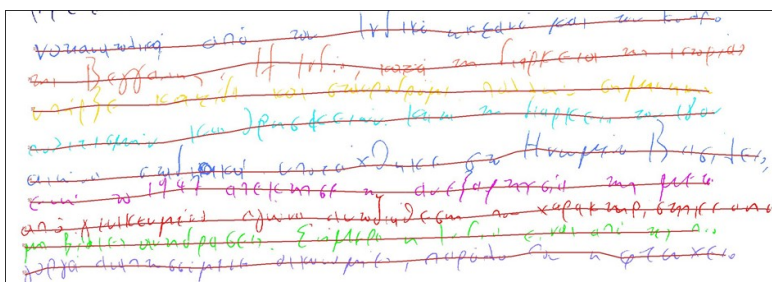 νοτιοανατολικά από τον Ινδικό ωκεανό και τον κόλπο
της Βεγγάλης. Η Ινδία, κατά τη διάρκεια της ιστορίας
υπήρξε κοιτίδα και σταυροδρόμι πολλών σημαντικών
πολιτισμών και θρησκειών. Κατά τη διάρκεια του 18ου
αιώνα σταδιακά υποτάχθηκε στο Ηνωμένο Βασίλειο,
ενώ το 1947 απέκτησε την ανεξαρτησία της μετά
από χαρακτηρίστηκε από
μη βίαιες αντιδράσεις. Σήμερα η Ινδία είναι από τις πιο
γοργά αναπτυσσόμενες οικονομίες, παρόλο που η φτώχεια,